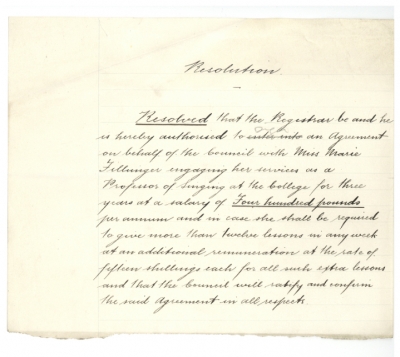 Resolution.
Resolved that the Registrar be and he
is hereby authorised to enter into an Agreement
on behalf of the Council with Miss Marie
Fillunger engaging her services as a
Professor of Singing at the College for three
years at a salary of Four hundred pounds
per annum and in case she shall be required
to give more than twelve lessons in any week
at an additional remuneration at the rate of
fifteen shillings each for all such extra lessons
and that the Council will ratify and confirm
the said Agreement in all respects